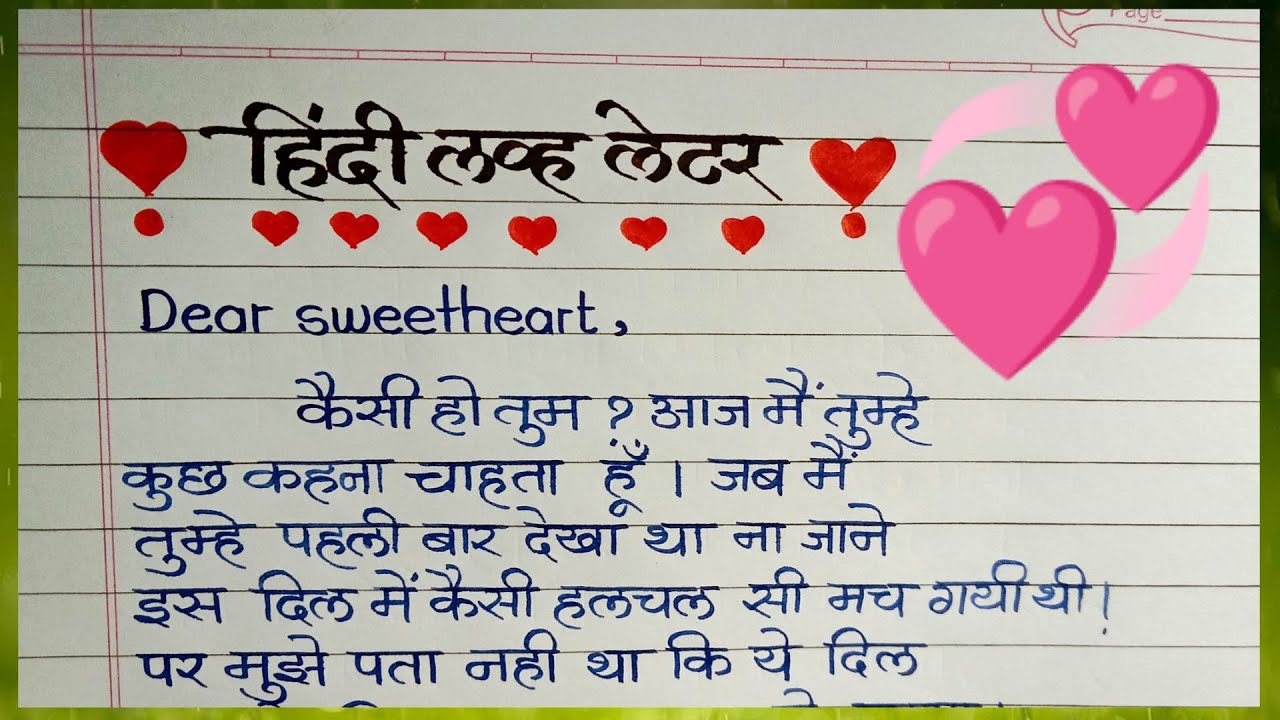 Page
हिंदी लव्ह लेटर
Dear sweetheart,
कैसी हो तुम ? आज मैं तुम्हे
कुछ कहना चाहता हूँ । जब मैं
तुम्हे पहली बार देखा था ना जाने
इस दिल में कैसी हलचल सी मच गयी थी।
पर मुझे पता नही था कि ये दिल